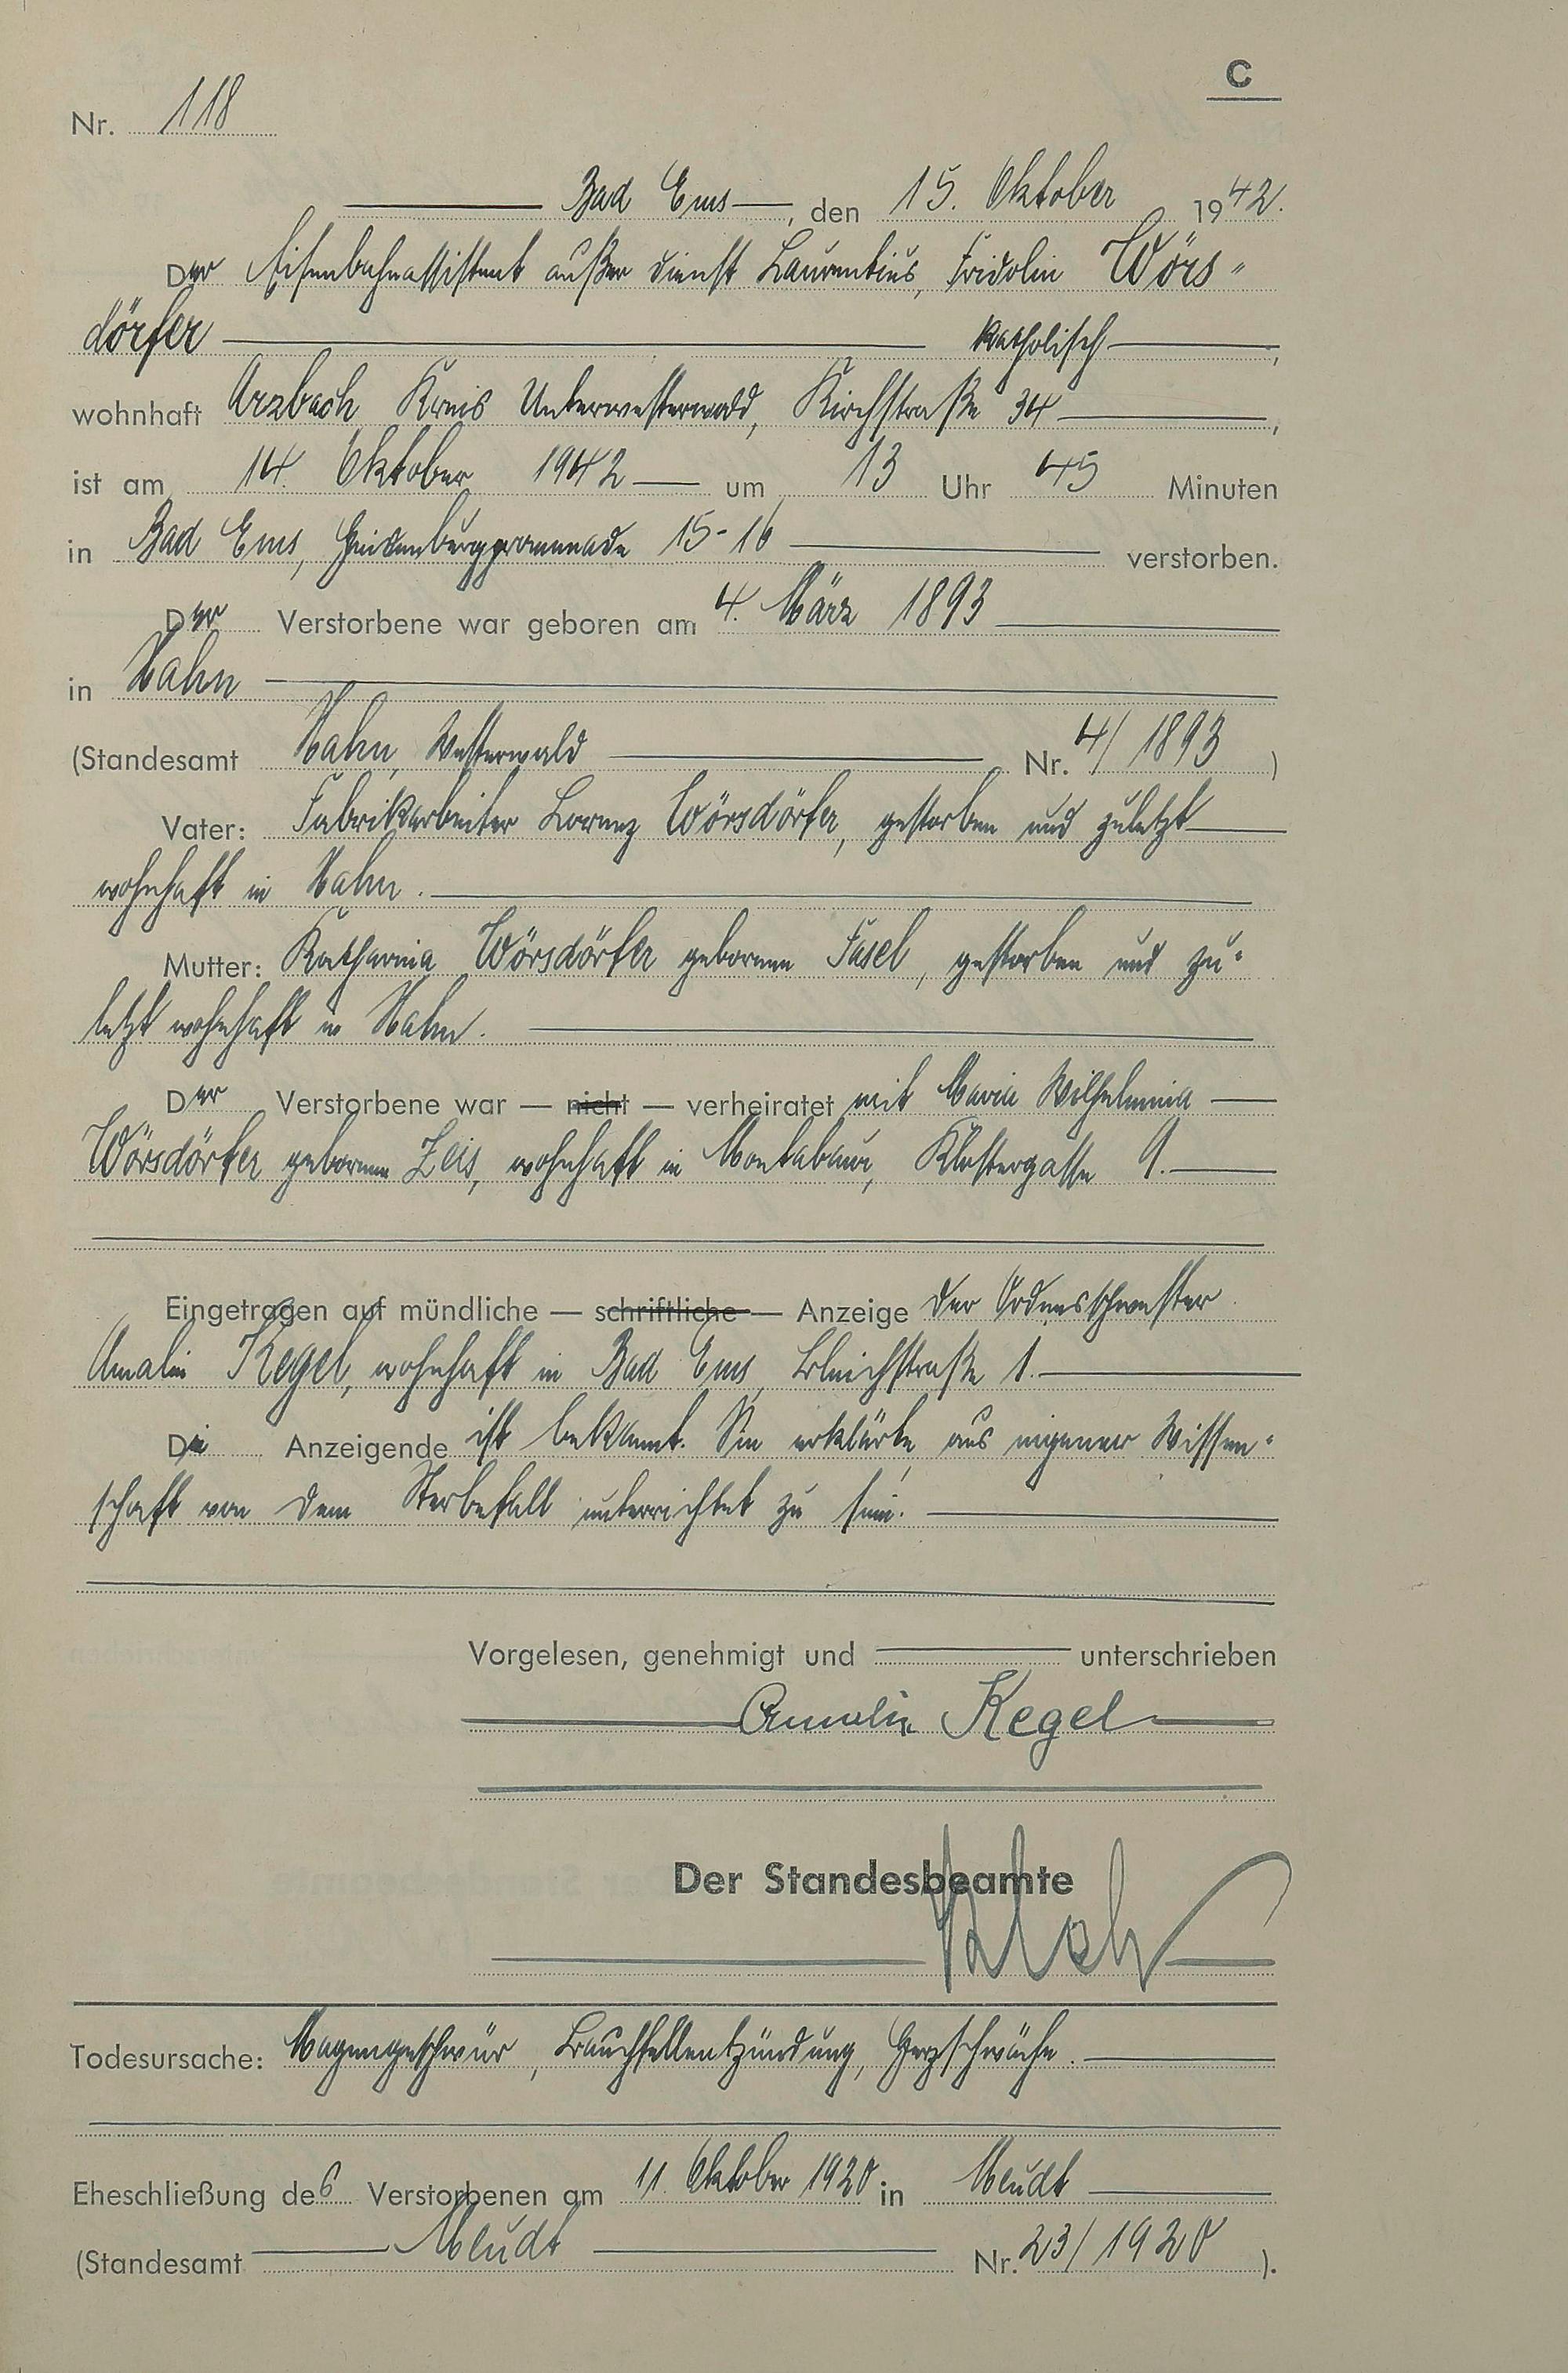 C
Nr. 118
Bad Ems, den 15. Oktober 1942.
Der Eisenbahnassistent außer Dienst Laurentius, Fridolin Wörs-
dörfer katholisch,
wohnhaft Arzbach Kreis Unterwesterwald, Kirchstraße 34,
ist am 14. Oktober 1942 um 13 Uhr 45 Minuten
in Bad Ems, 15-16 verstorben.
Der Verstorbene war geboren am 4. März 1893
in Hahn
(Standesamt Hahn, Westerwald Nr. 4/1893)
Vater: Fabrikarbeiter Lorenz Wörsdörfer, gestorben und zuletzt
wohnhaft in Hahn.
Mutter: Katharina Wörsdörfer geborene Fasel, gestorben und zu-
letzt wohnhaft in Hahn.
Der Verstorbene war — nicht — verheiratet mit Maria Wilhelmina
Wörsdörfer geborene Zeis, wohnhaft in Montabaur, Klostergasse 9.
Eingetragen auf mündliche — schriftliche — Anzeige der Ordensschwester
Amalie Kegel, wohnhaft in Bad Ems, Bleichstraße 1.
Die Anzeigende ist bekannt. Sie erklärte aus eigener Wissen-
schaft von dem Sterbefall unterrichtet zu sein.
Vorgelesen, genehmigt und unterschrieben
Amalie Kegel
Der Standesbeamte
Todesursache: Magengeschwür, Bauchfellentzündung, Herzschwäche.
Eheschließung des Verstorbenen am 11. Oktober 1920 in Meudt
(Standesamt Meudt Nr. 23/1920).